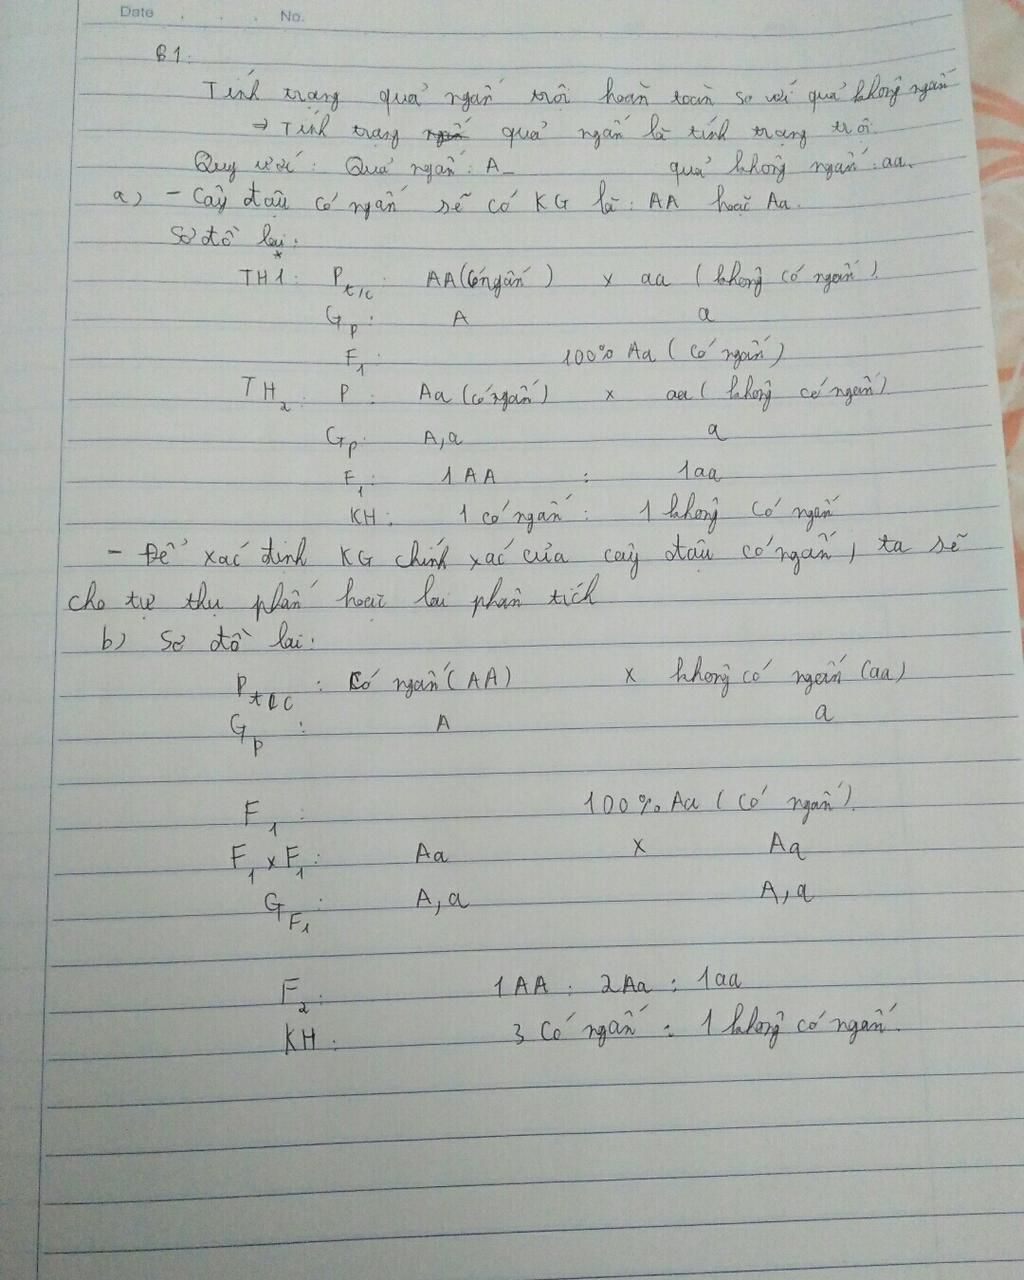 Date . . . No.
B1:
Tính trạng quả ngấn trội hoàn toàn so với quả không ngấn
⇒ Tính trạng quả ngấn là tính trạng trội.
Quy ước: Quả ngấn: A_ quả không ngấn: aa.
a) - Cây đậu có ngấn sẽ có KG là: AA hoặc Aa.
Sơ đồ lai:
TH1: P t/c: AA (có ngấn) x aa (không có ngấn)
Gp: A a
F1: 100% Aa (có ngấn)
TH2: P: Aa (có ngấn) x aa (không có ngấn)
Gp: A, a a
F1: 1AA : 1aa
KH: 1 có ngấn: 1 không có ngấn
- Để xác định KG chính xác của cây đậu có ngấn, ta sẽ
cho tự thụ phấn hoặc lai phân tích
b) Sơ đồ lai:
P t/c: Có ngấn (AA) x không có ngấn (aa)
Gp: A a
F1: 100% Aa (có ngấn).
F1 x F1: Aa x Aa
GF1: A, a A, a
F2: 1AA : 2Aa : 1aa
KH: 3 có ngấn : 1 không có ngấn.